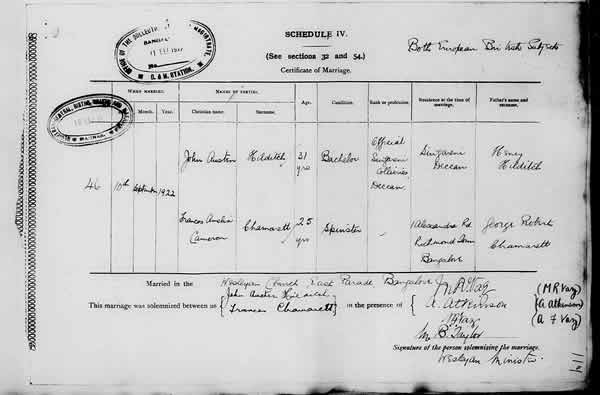 SCHEDULE IV.
(See sections 32 and 54.)
Certificate of Marriage.
Both European British Subjects
OFFICE OF THE COLLECTOR
MAGISTRATE,
C. & M. STATION.
WHEN MARRIED.
NAMES OF PARTIES.
Month.
Year.
Christian name.
Surname.
Age.
Condition.
Rank or profession.
Residence at the time of marriage.
Father's name and surname.
46
10th
September
1922
John Austen
Hilditch
31 yrs
Bachelor
Official Singareni Collieries, Deccan
Singareni Deccan
Henry Hilditch
Frances Amelia Cameron
Chamarett
25 yrs
Spinster
1 Alexandra Rd Richmond Town Bangalore
George Robert Chamarett
Married in the Wesleyan Church East Parade Bangalore
This marriage was solemnized between us { John Austen Hilditch
Frances Chamarett } in the presence of {
A. Atkinson
(M R Vaz)
(A Atkinson)
(A F Vaz)
M. B. Taylor
Signature of the person solemnizing the marriage.
Wesleyan Minister.